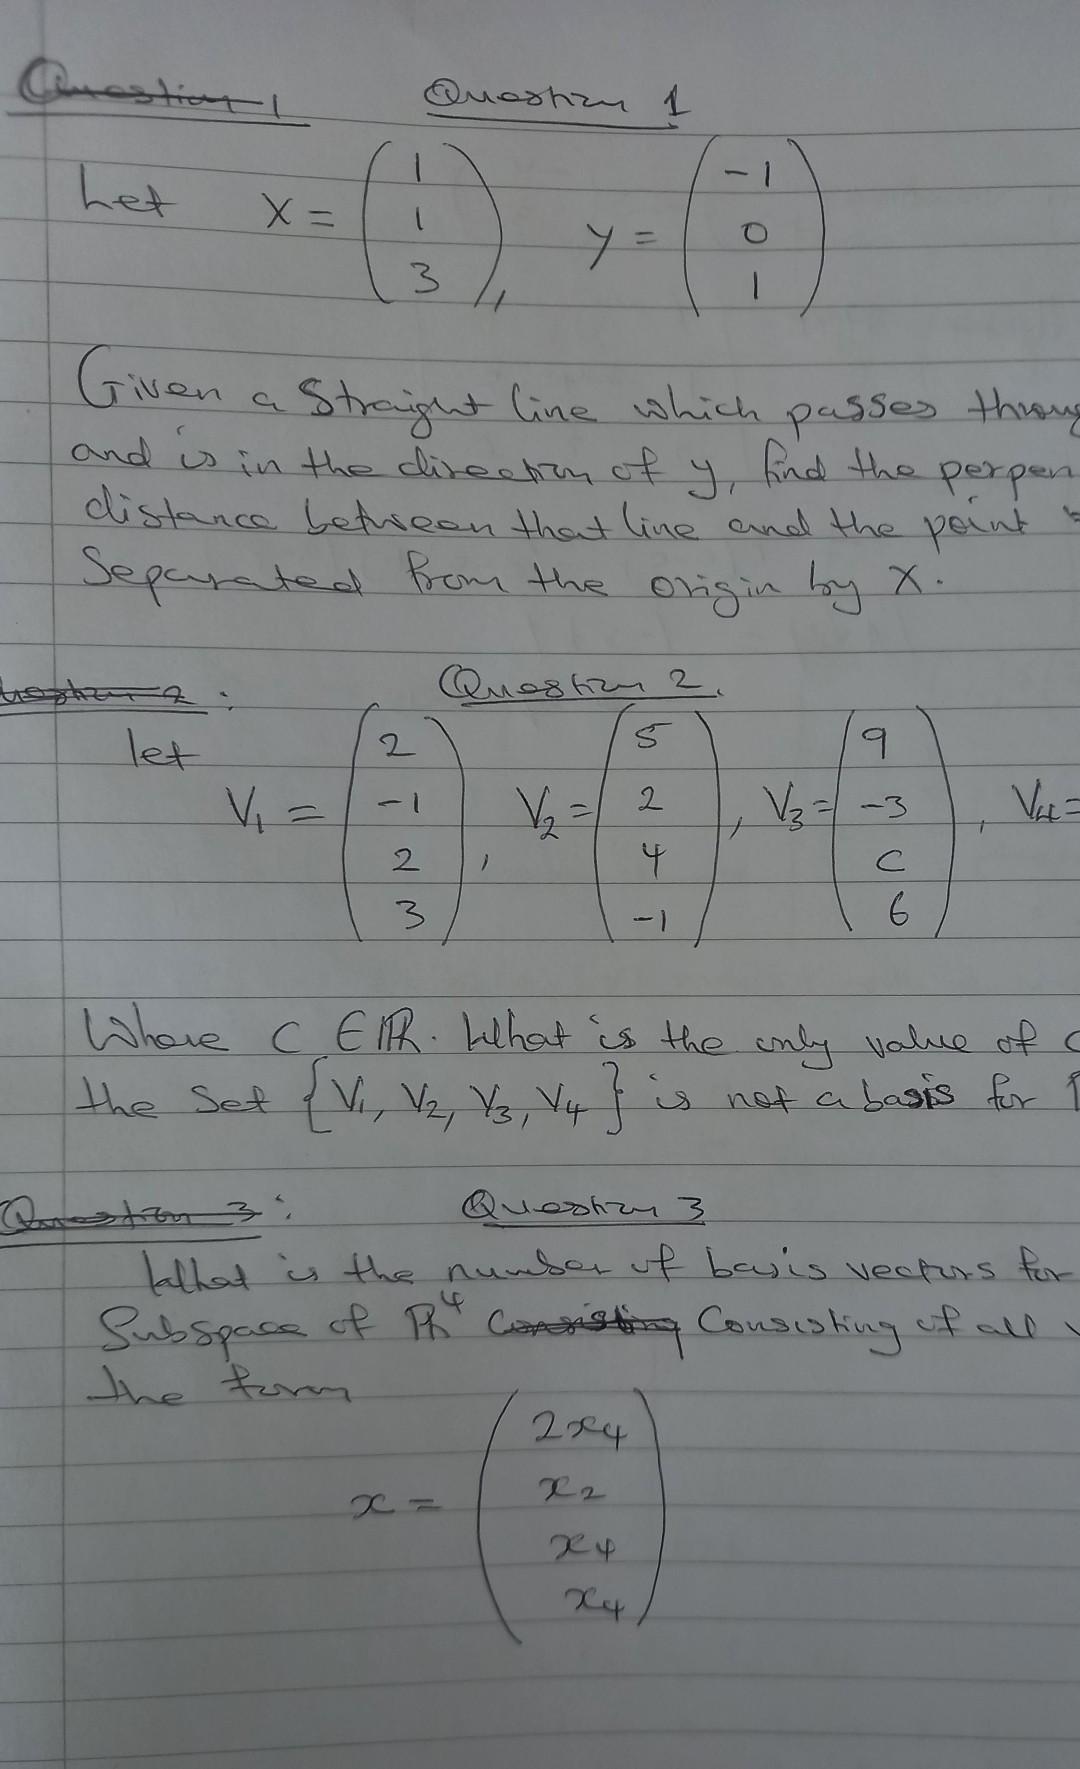 Question 1 Question 1
Let X = ( 1 1 3 ), y = ( -1 0 1 )
Given a straight line which passes
and is in the direction of y, find the
distance between that line and the point
Separated from the origin by X.
Question 2.
let V1 = ( 2 -1 2 3 ), V2 = ( 5 2 4 -1 ), V3 = ( 9 -3 C 6 ), V4 =
Where C ∈ ℝ. What is the only value of
the set {V1, V2, V3, V4} is not a basis for
Question 3: Question 3
What is the number of basis vectors for
Subspace of ℝ⁴ Consisting Consisting of all
the form
x = ( 2x4 x2 x4 x4 )